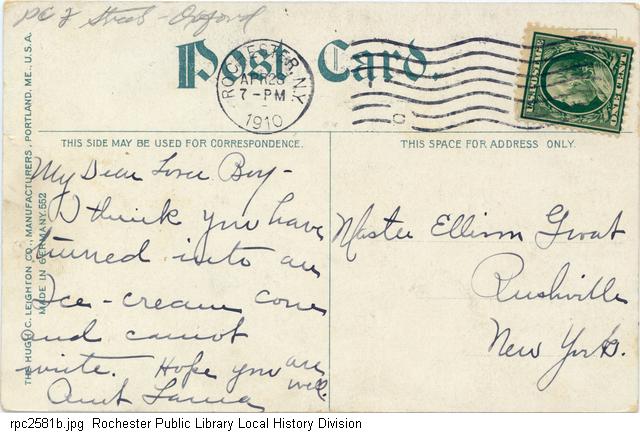 PC 2 Streets - Oxford
Post Card.
ROCHESTER, N.Y.
APR 23
7-PM
1910
U.S. POSTAGE
ONE CENT
THIS SIDE MAY BE USED FOR CORRESPONDENCE.
THIS SPACE FOR ADDRESS ONLY.
THE HUGH C. LEIGHTON CO., MANUFACTURERS, PORTLAND, ME., U.S.A.
MADE IN GERMANY. 552
My Dear Boy -
I think you have
turned into an
Ice-cream cone
and cannot
write. Hope you are
well.
Aunt
Master Ellison Groat
Rushville
New York.
rpc2581b.jpg Rochester Public Library Local History Division